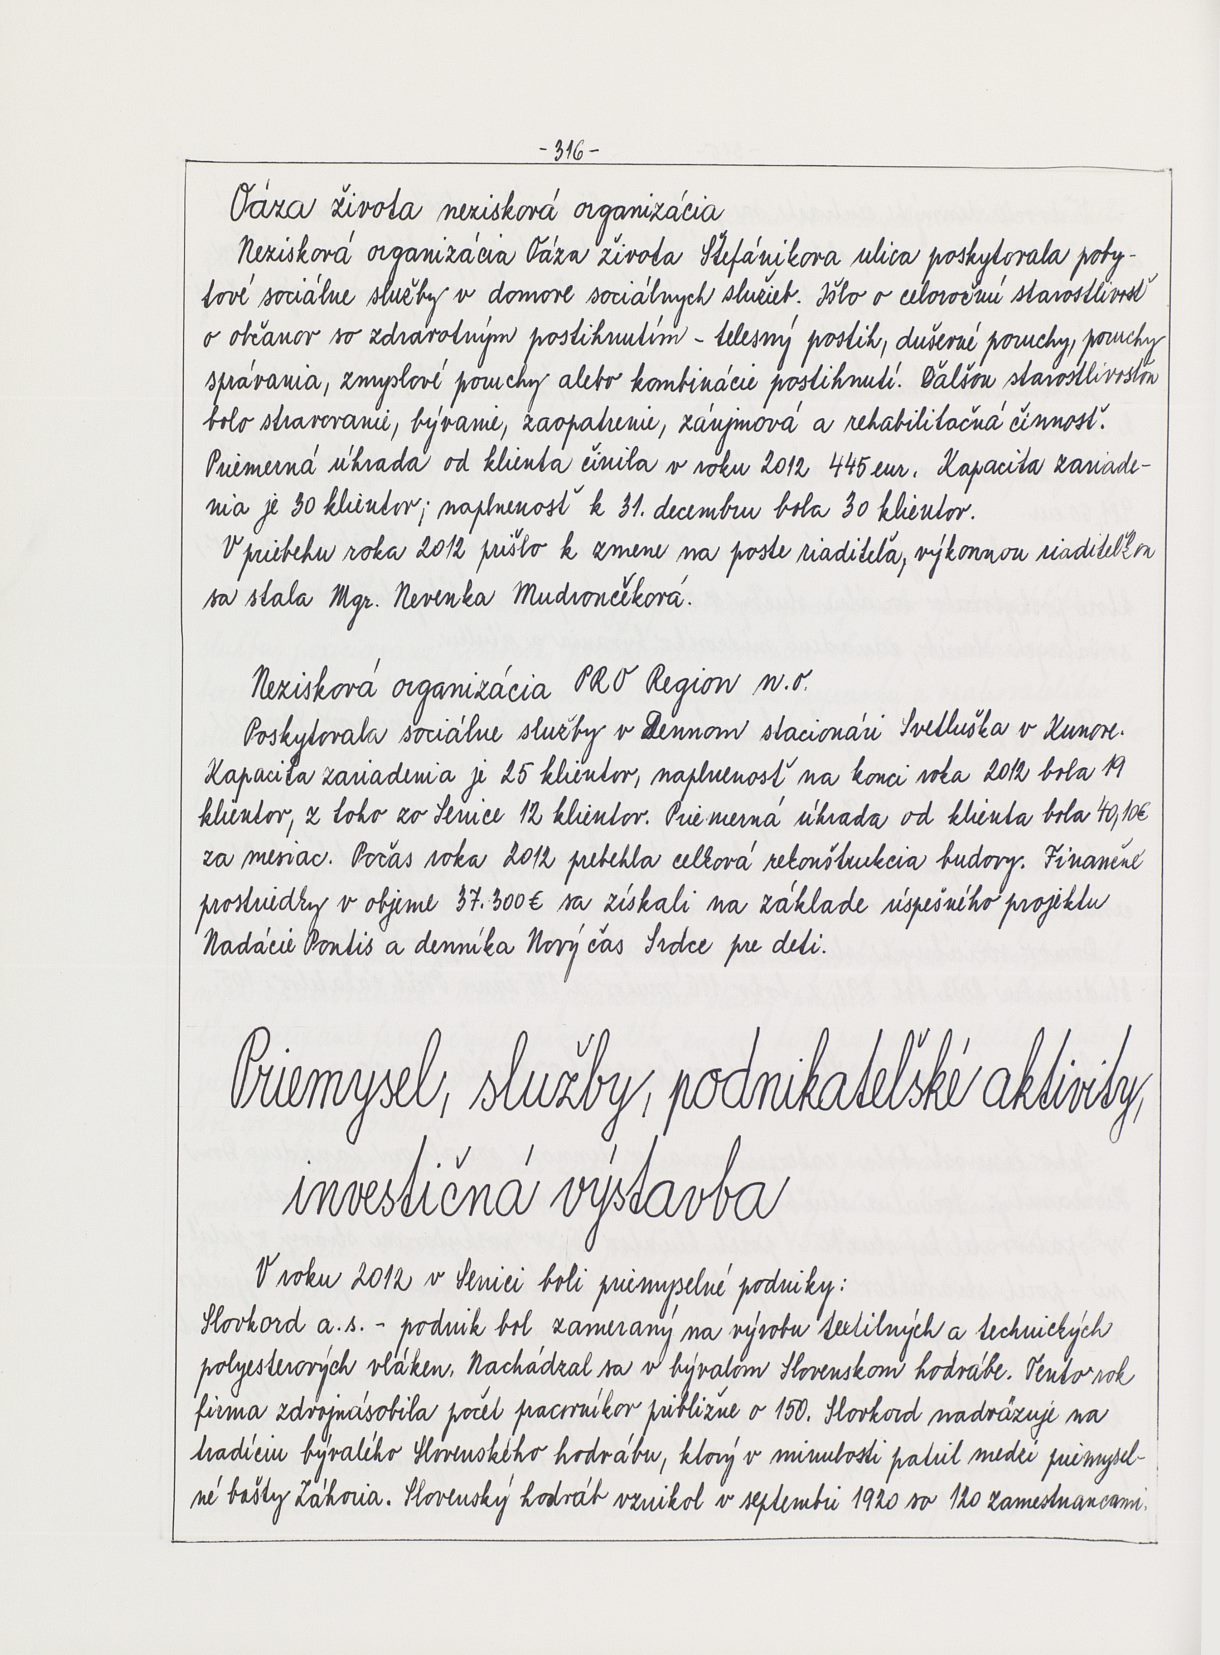 - 316 -
Oáza života nezisková organizácia
Nezisková organizácia Oáza života Štefánikova ulica poskytovala poby-
tové sociálne služby v domove sociálnych služieb. Išlo o celoročnú starostlivosť
o občanov so zdravotným postihnutím - telesný postih, duševné poruchy, poruchy
správania, zmyslové poruchy alebo kombinácie postihnutí. Ďalšou starostlivosťou
bolo stravovanie, bývanie, zaopatrenie, záujmová a rehabilitačná činnosť.
Priemerná úhrada od klienta činila v roku 2012 445 eur. Kapacita zariade-
nia je 30 klientov; naplnenosť k 31. decembru bola 30 klientov.
V priebehu roka 2012 prišlo k zmene na poste riaditeľa, výkonnou riaditeľkou
sa stala Mgr. Nevenka Mudrončéková.
Nezisková organizácia PRO Region n.o.
Poskytovala sociálne služby v Dennom stacionári Svetluška v Kunove.
Kapacita zariadenia je 25 klientov, naplnenosť na konci roka 2012 bola 19
klientov, z toho zo Senice 12 klientov. Priemerná úhrada od klienta bola 40,10€
za mesiac. Počas roka 2012 prebehla celková rekonštrukcia budovy. Finančné
prostriedky v objeme 37.300€ sa získali na základe úspešného projektu
Nadácie Pontis a denníka Nový čas Srdce pre deti.
Priemysel, služby, podnikateľské aktivity,
investičná výstavba
V roku 2012 v Senici boli priemyselné podniky:
Slovkord a.s. - podnik bol zameraný na výrobu textilných a technických
polyesterových vláken. Nachádzal sa v bývalom Slovenskom hodvábe. Tento rok
firma zdvojnásobila počet pracovníkov približne o 150. Slovkord nadväzuje na
tradíciu bývalého Slovenského hodvábu, ktorý v minulosti patril medzi priemysel-
né bašty Záhoria. Slovenský hodváb vznikol v septembri 1920 so 120 zamestnancami.